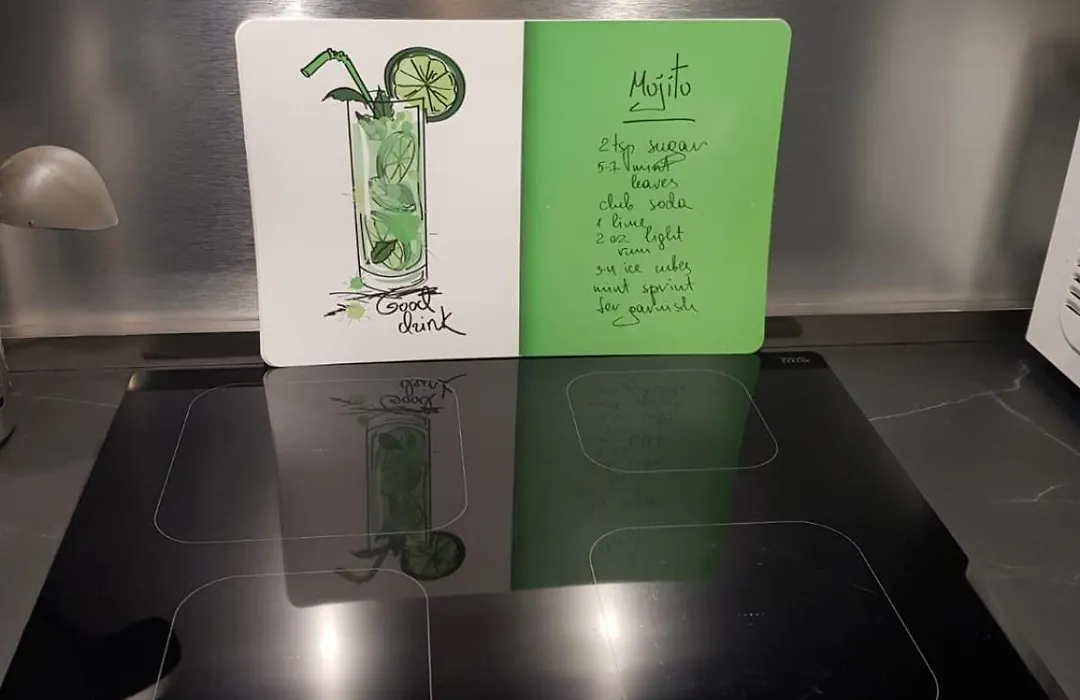 Good
drink
Mojito
2 tsp sugar
5-7 mint
leaves
club soda
1 lime
2 oz light
rum
3-4 ice cubes
mint sprint
for garnish